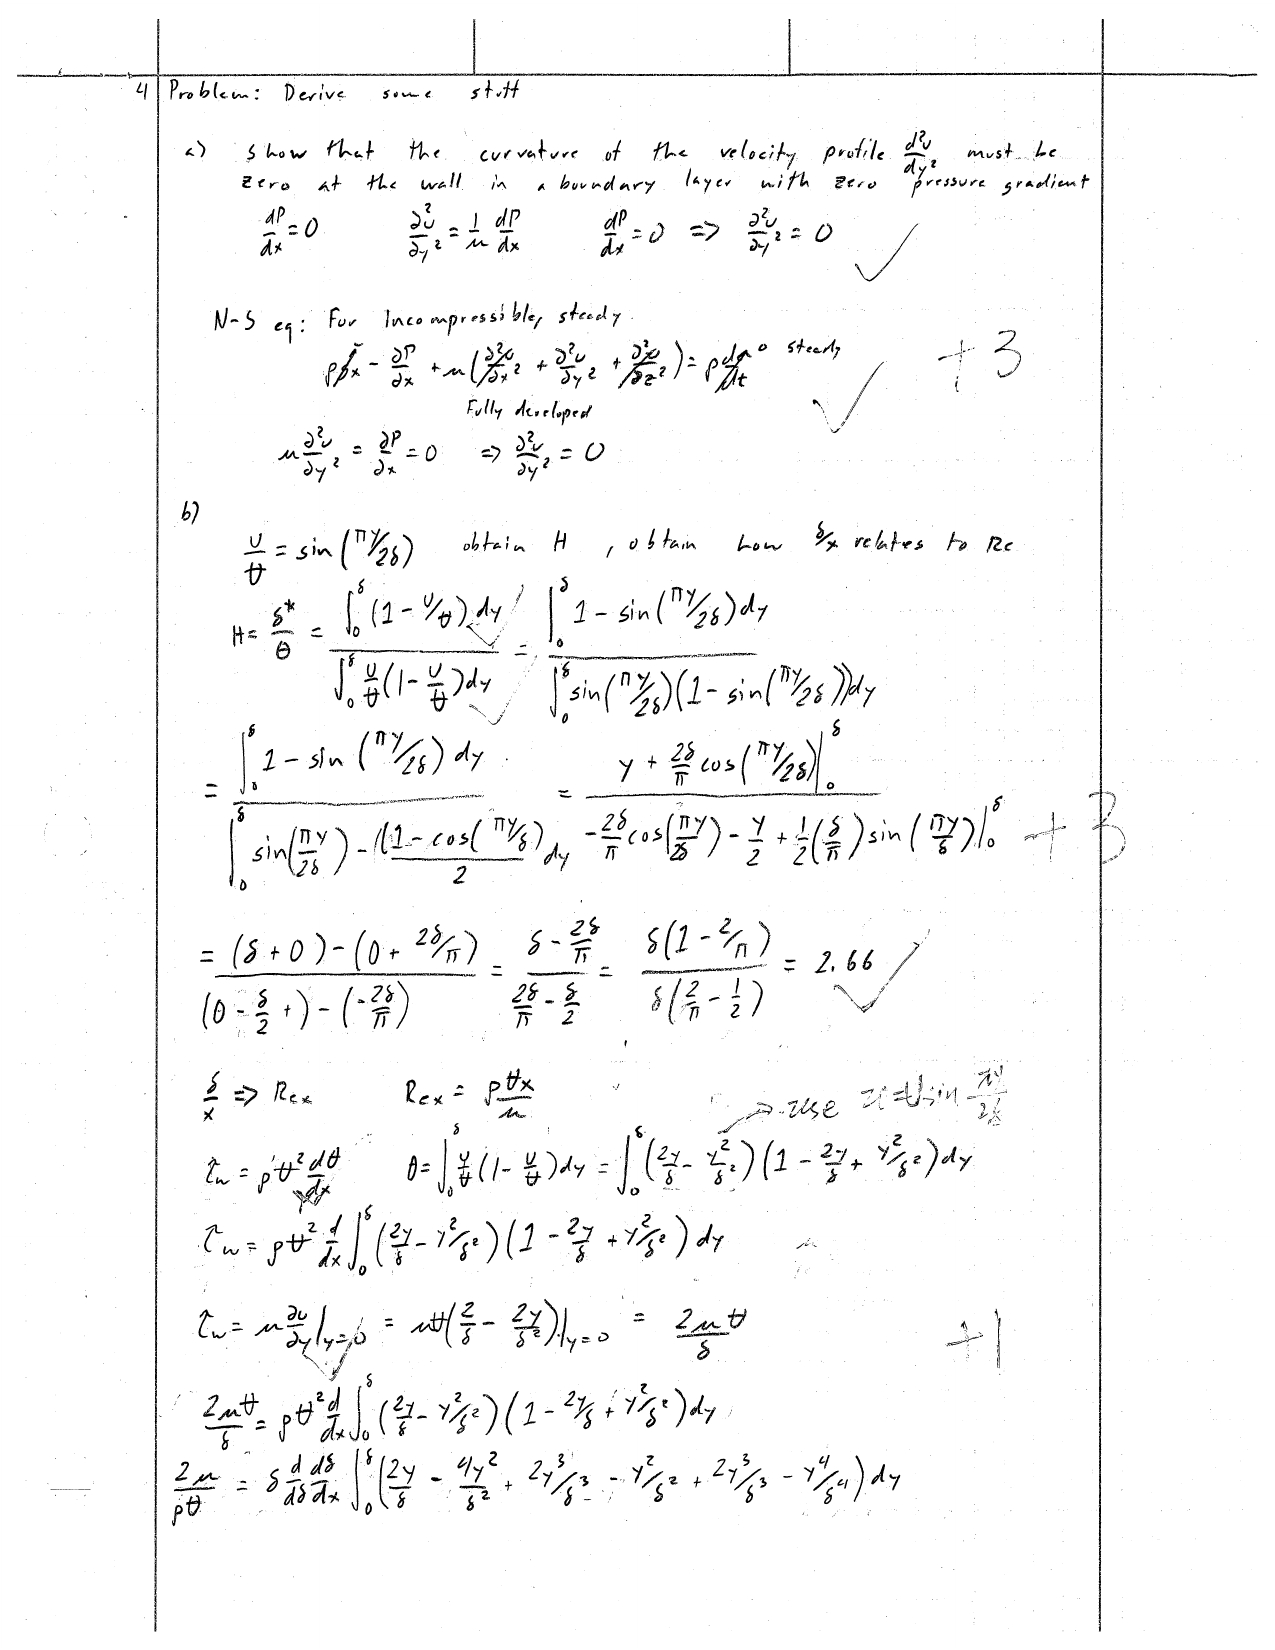 4 Problem: Derive some stuff
a) Show that the curvature of the velocity profile d²u/dy² must be
zero at the wall in a boundary layer with zero pressure gradient
dP/dx = 0   ∂²u/∂y² = 1/μ dP/dx   dP/dx = 0 => ∂²u/∂y² = 0 ✓
N-S eq: For Incompressible, steady
ρgx - ∂P/∂x + μ(∂²u/∂x² + ∂²u/∂y² + ∂²u/∂z²) = ρ du/dt → 0 steady ✓ +3
Fully developed
μ ∂²u/∂y² = ∂P/∂x = 0 => ∂²u/∂y² = 0
b)
u/U = sin(πy/2δ) obtain H, obtain how δ/x relates to Re
H = δ*/θ = ∫₀^δ (1 - u/U) dy / ∫₀^δ u/U (1 - u/U) dy = ∫₀^δ 1 - sin(πy/2δ) dy / ∫₀^δ sin(πy/2δ)(1 - sin(πy/2δ)) dy
= ∫₀^δ 1 - sin(πy/2δ) dy / ∫₀^δ sin(πy/2δ) - ((1 - cos(πy/δ)/2 dy = y + 2δ/π cos(πy/2δ)|₀^δ / -2δ/π cos(πy/2δ) - y/2 + 1/2(δ/π) sin(πy/δ)|₀^δ +3
= (δ + 0) - (0 + 2δ/π) / (0 - δ/2 + ) - (-2δ/π) = δ - 2δ/π / 2δ/π - δ/2 = δ(1 - 2/π) / δ(2/π - 1/2) = 2.66 ✓
δ/x => Rex   Rex = ρUx/μ   → use u = U sin πy/2δ
τw = ρU² dθ/dx   θ = ∫₀^δ u/U (1 - u/U) dy = ∫₀^δ (2y/δ - y²/δ²)(1 - 2y/δ + y²/δ²) dy
τw = ρU² d/dx ∫₀^δ (2y/δ - y²/δ²)(1 - 2y/δ + y²/δ²) dy
τw = μ ∂u/∂y|y=0 = μU(2/δ - 2y/δ²)|y=0 = 2μU/δ ✓ +1
2μU/δ = ρU² d/dx ∫₀^δ (2y/δ - y²/δ²)(1 - 2y/δ + y²/δ²) dy
2μ/ρU = δ d/dδ dδ/dx ∫₀^δ (2y/δ - 4y²/δ² + 2y³/δ³ - y²/δ² + 2y³/δ³ - y⁴/δ⁴) dy